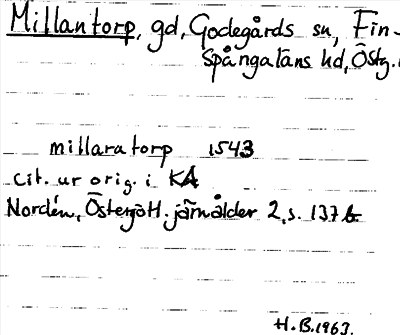 Millantorp, gd, Godegårds sn, Fin-
spångaläns hd, Östg.
millaratorp 1543
cit. ur orig. i KA
Nordén, Östergötl. järnålder 2, s. 137 b.
H.B. 1963.